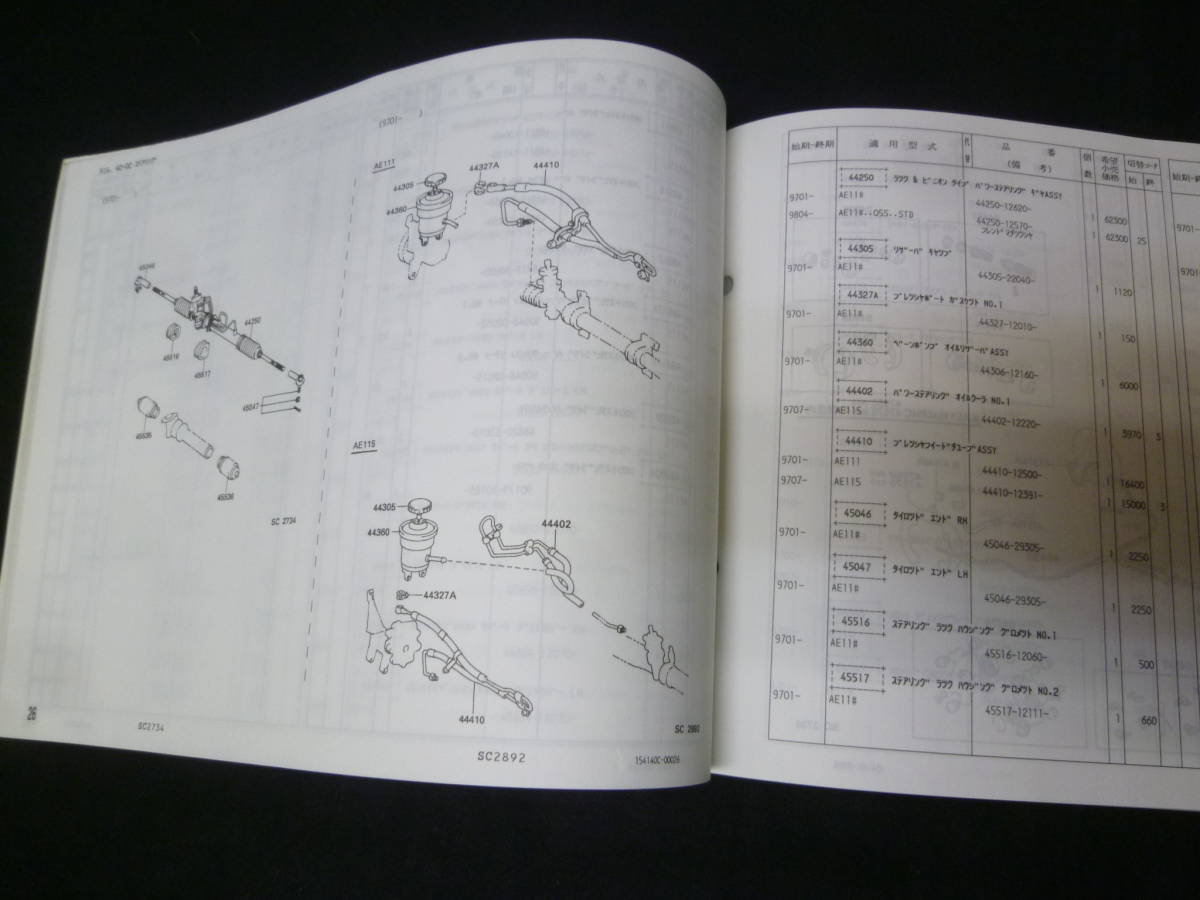 (9701-      )
AE111
44327A
44410
44305
44360
44250
45516
45517
45047
45535
45536
SC 2734
AE115
44305
44360
44402
44327A
44410
26
SC2734
SC2892
154140C-00026
始期-終期
適 用 型 式
品 番
(備 考)
個数
希望小売価格
始 終
44250 ラツク & ピニオン タイプ パワーステアリング ギヤASSY
9701- AE11# 44250-12620- 1 62300
9804- AE11#..OSS..STD 44250-12570- 1 62300 25
44305 リザーバ キヤツプ
9701- AE11# 44305-22040- 1 1120
44327A プレツシヤポート ガスケツト NO.1
9701- AE11# 44327-12010- 1 150
44360 ベーンポンプ オイルリザーバASSY
9701- AE11# 44306-12160- 1 6000
44402 パワーステアリング オイルクーラ NO.1
9707- AE115 44402-12220- 1 3970 3
44410 プレツシヤフイードチユーブASSY
9701- AE111 44410-12500- 1 16400
9707- AE115 44410-12391- 1 15000 3
45046 タイロツド エンド RH
9701- AE11# 45046-29305- 1 2250
45047 タイロツド エンド LH
9701- AE11# 45046-29305- 1 2250
45516 ステアリング ラツク ハウジング グロメツト NO.1
9701- AE11# 45516-12060- 1 500
45517 ステアリング ラツク ハウジング グロメツト NO.2
9701- AE11# 45517-12111- 1 660
始期-
9701-
9701-